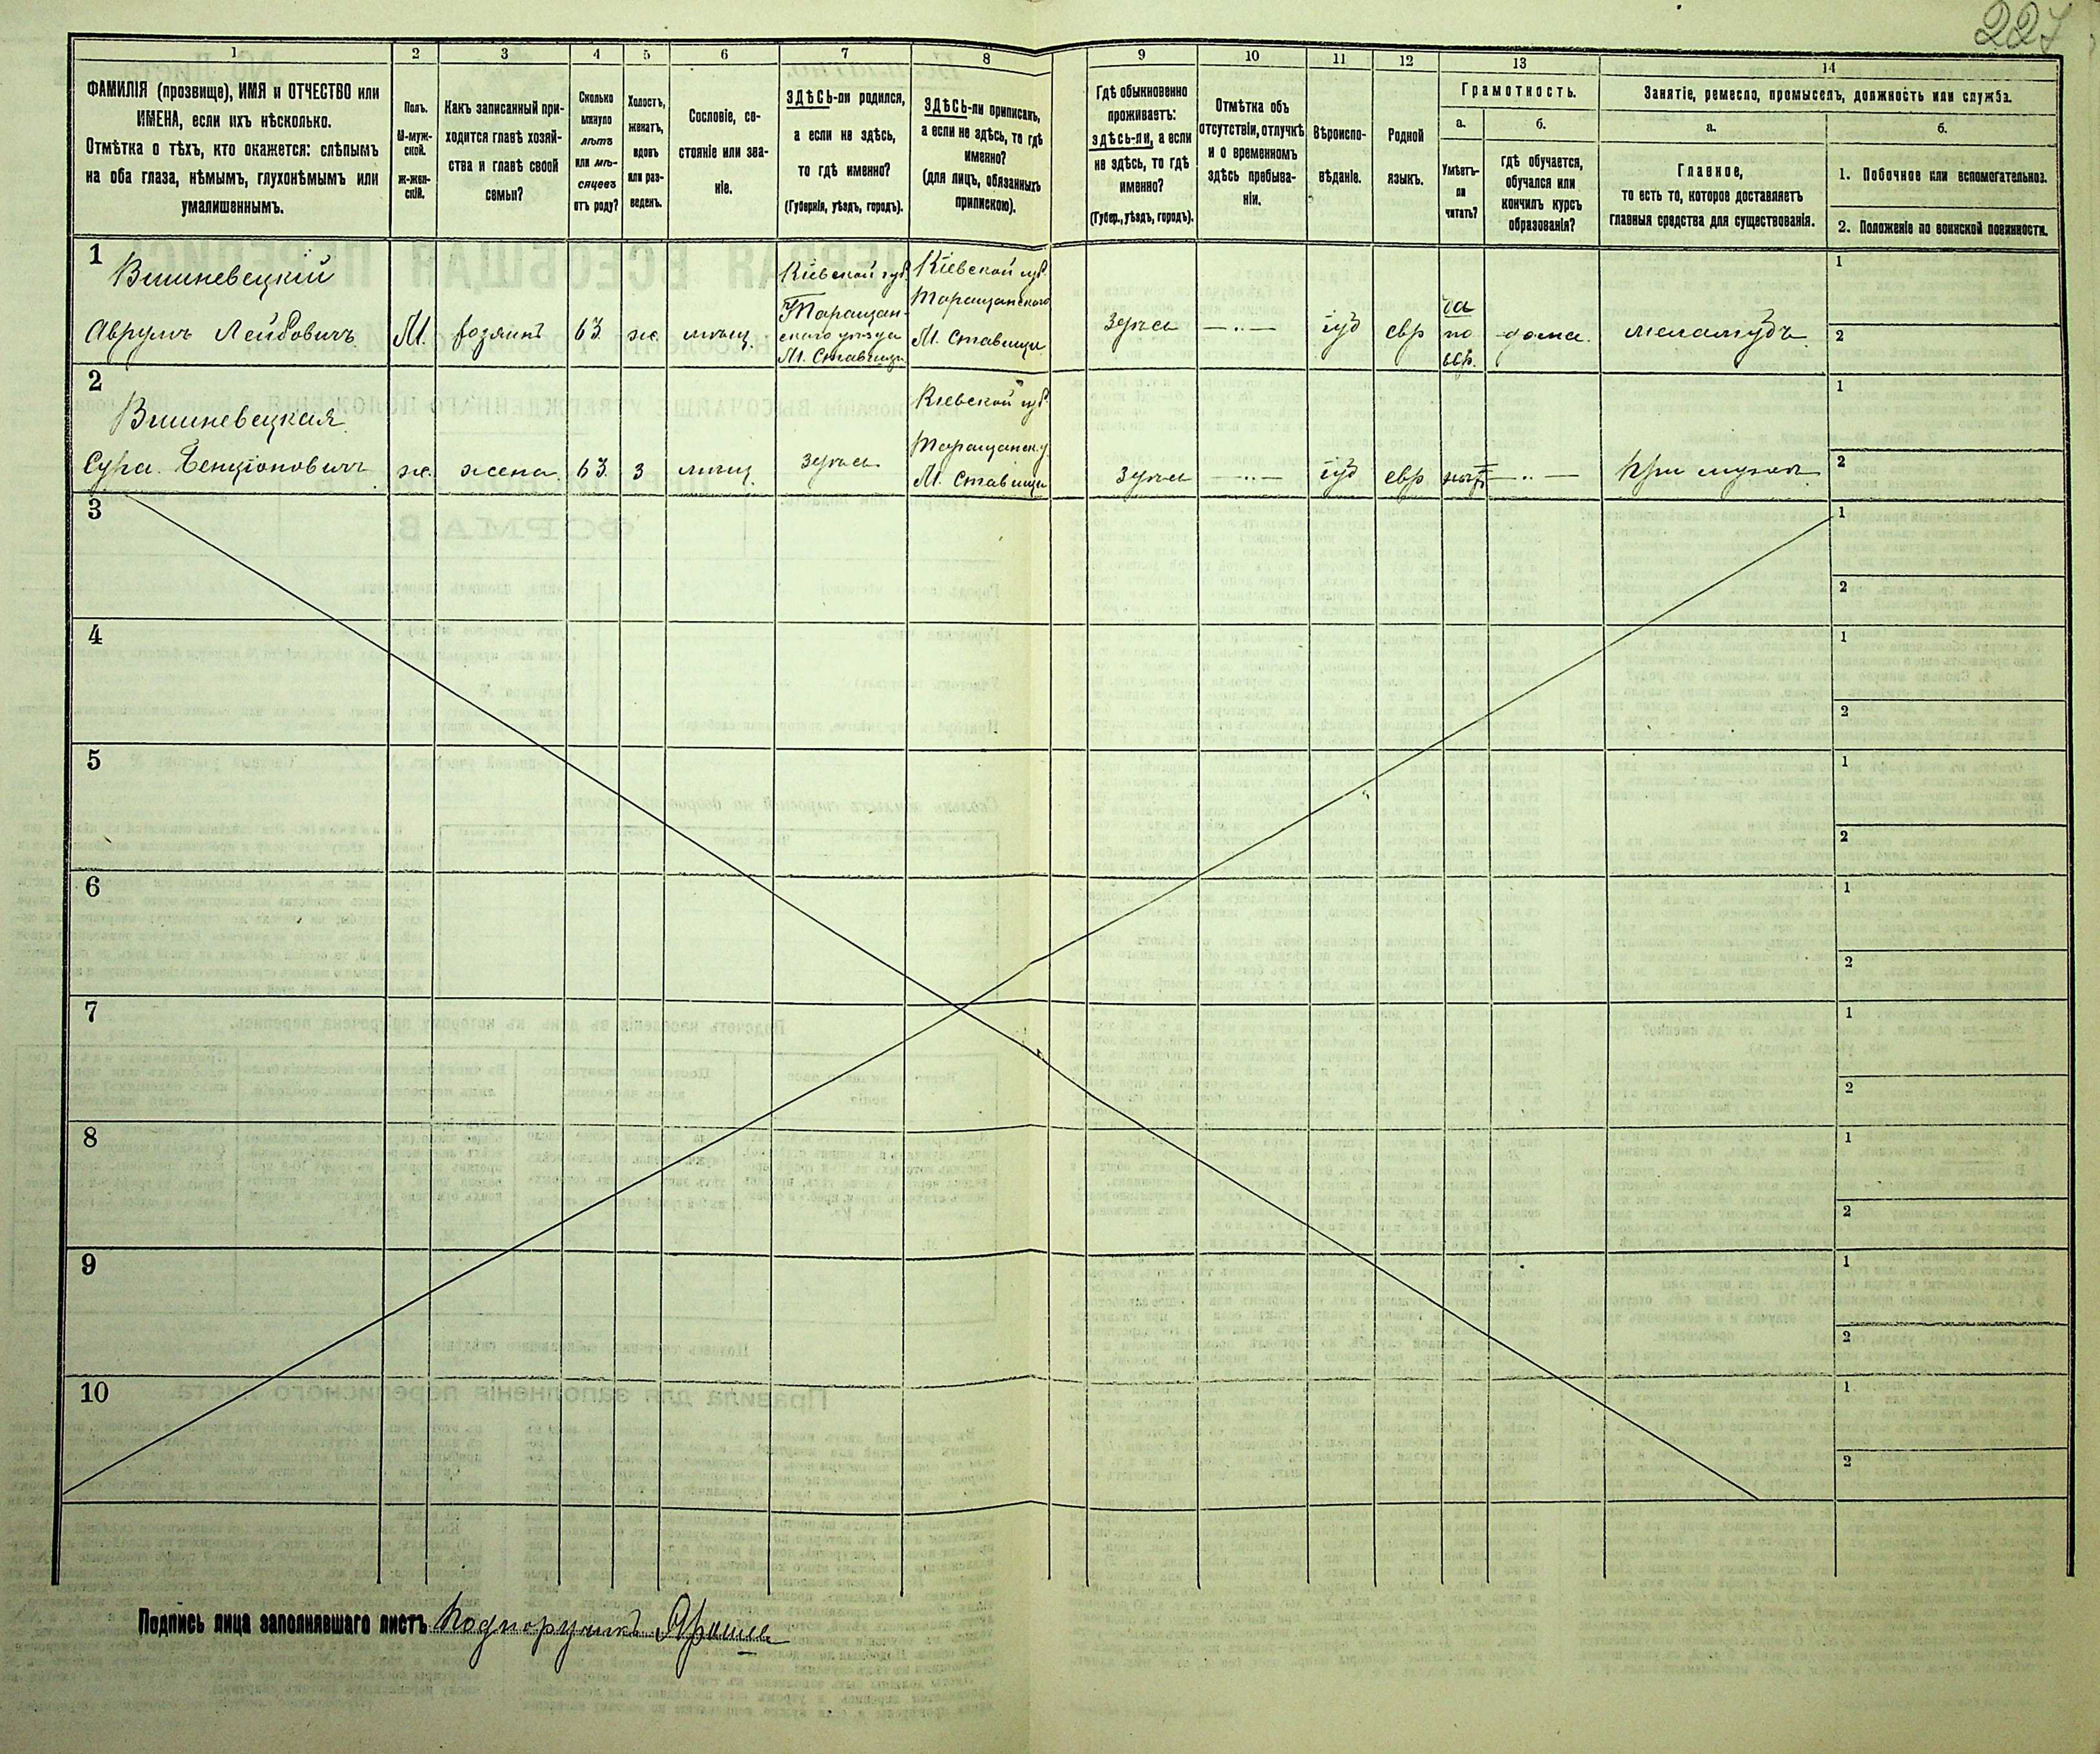 227
1
2
3
4
5
6
7
8
9
10
11
12
13
14
ФАМИЛІЯ (прозвище), ИМЯ и ОТЧЕСТВО или
ИМЕНА, если ихъ нѣсколько.
Отмѣтка о тѣхъ, кто окажется: слѣпымъ
на оба глаза, нѣмымъ, глухонѣмымъ или
умалишеннымъ.
Полъ.
М-муж-
ской.
Ж-жен-
скій.
Какъ записанный при-
ходится главѣ хозяй-
ства и главѣ своей
семьи?
Сколько
минуло
лѣтъ
или мѣ-
сяцевъ
отъ роду?
Холостъ,
женатъ,
вдовъ
или раз-
веденъ.
Сословіе, со-
стояніе или зва-
ніе.
ЗДѢСЬ-ли родился,
а если не здѣсь,
то гдѣ именно?
(Губернія, уѣздъ, городъ).
ЗДѢСЬ-ли приписанъ,
а если не здѣсь, то гдѣ
именно?
(для лицъ, обязанныхъ
припискою).
Гдѣ обыкновенно
проживаетъ:
здѣсь-ли, а если
не здѣсь, то гдѣ
именно?
(Губер., уѣздъ, городъ).
Отмѣтка объ
отсутствіи, отлучкѣ
и о временномъ
здѣсь пребыва-
ніи.
Вѣроиспо-
вѣданіе.
Родной
языкъ.
Грамотность.
а.
б.
Умѣетъ-
ли
читать?
гдѣ обучается,
обучался или
кончилъ курсъ
образованія?
Занятіе, ремесло, промыселъ, должность или служба.
а.
б.
Главное,
то есть то, которое доставляетъ
главныя средства для существованія.
1. Побочное или вспомогательное.
2. Положеніе по воинской повинности.
1
Вишневецкій
Аврумъ Лейбовичъ
М.
хозяинъ
63
же.
мѣщ.
Кіевской губ.
Таращан-
скаго уѣзда
М. Ставищи
Кіевской губ.
Таращанскаго
М. Ставищи
Здѣсь
— .. —
іуд
евр
да
по
евр.
дома.
меламудъ.
1
2
2
Вишневецкая
Сура Бенціоновичъ
же.
жена
63
з
мѣщ.
здѣсь
Кіевской губ.
Таращанск. у.
М. Ставищи
Здѣсь
— .. —
іуд
евр
нѣтъ
— .. —
При мужѣ
1
2
3
1
2
4
1
2
5
1
2
6
1
2
7
1
2
8
1
2
9
1
2
10
1
2
Подпись лица заполнявшаго листъ Подпоручикъ